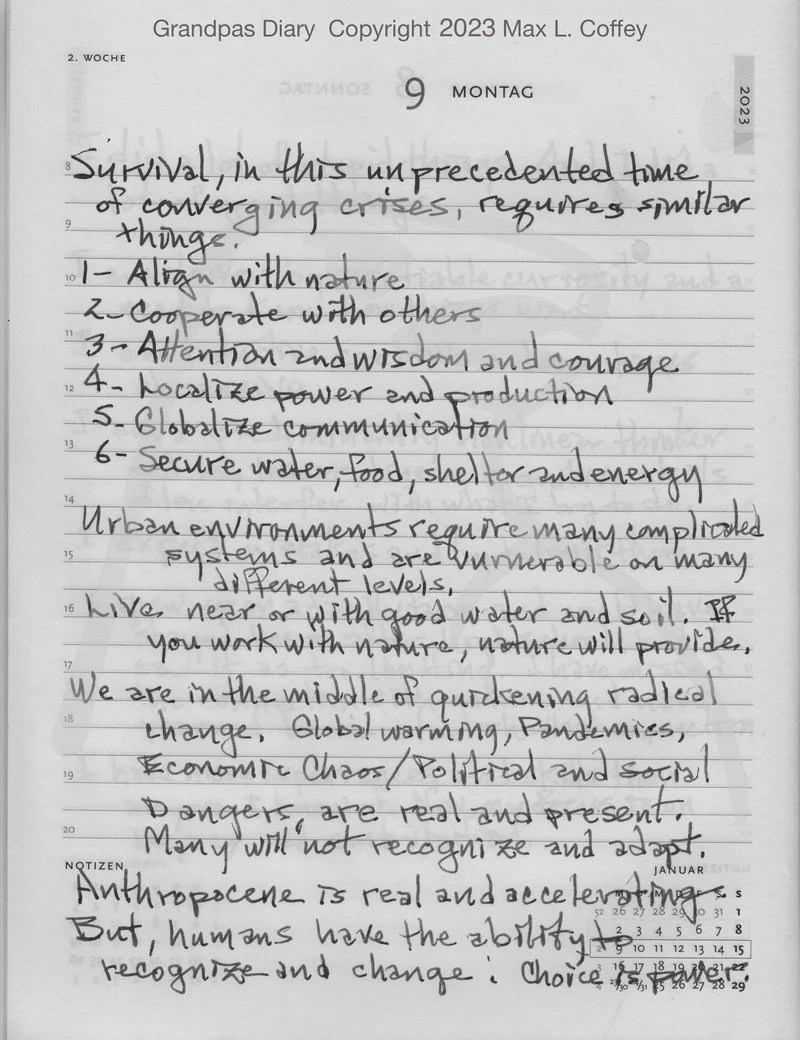 Grandpas Diary Copyright 2023 Max L. Coffey
2. WOCHE
9 MONTAG
2023
8 Survival, in this unprecedented time
of converging crises, requires similar
9
things.
10 1- Align with nature
2- Cooperate with others
11
3- Attention and wisdom and courage
12 4- Localize power and production
5- Globalize communication
13
6- Secure water, food, shelter and energy
14
Urban environments require many complicated
15 systems and are vurnerable on many
different levels,
16 Live near or with good water and soil. If
you work with nature, nature will provide.
17
We are in the middle of quickening radical
18 change. Global warming, Pandemics,
19 Economic Chaos/Political and social
Dangers, are real and present.
20 Many will not recognize and adapt.
NOTIZEN
JANUAR
Anthropocene is real and accelerating.
S. S
52 26 27 28 29 30 31 1
But, humans have the ability to
2 3 4 5 6 7 8
2 9 10 11 12 13 14 15
recognize and change. Choice is power.
16 17 18 19 20 21 22
23/30 24/31 25 26 27 28 29